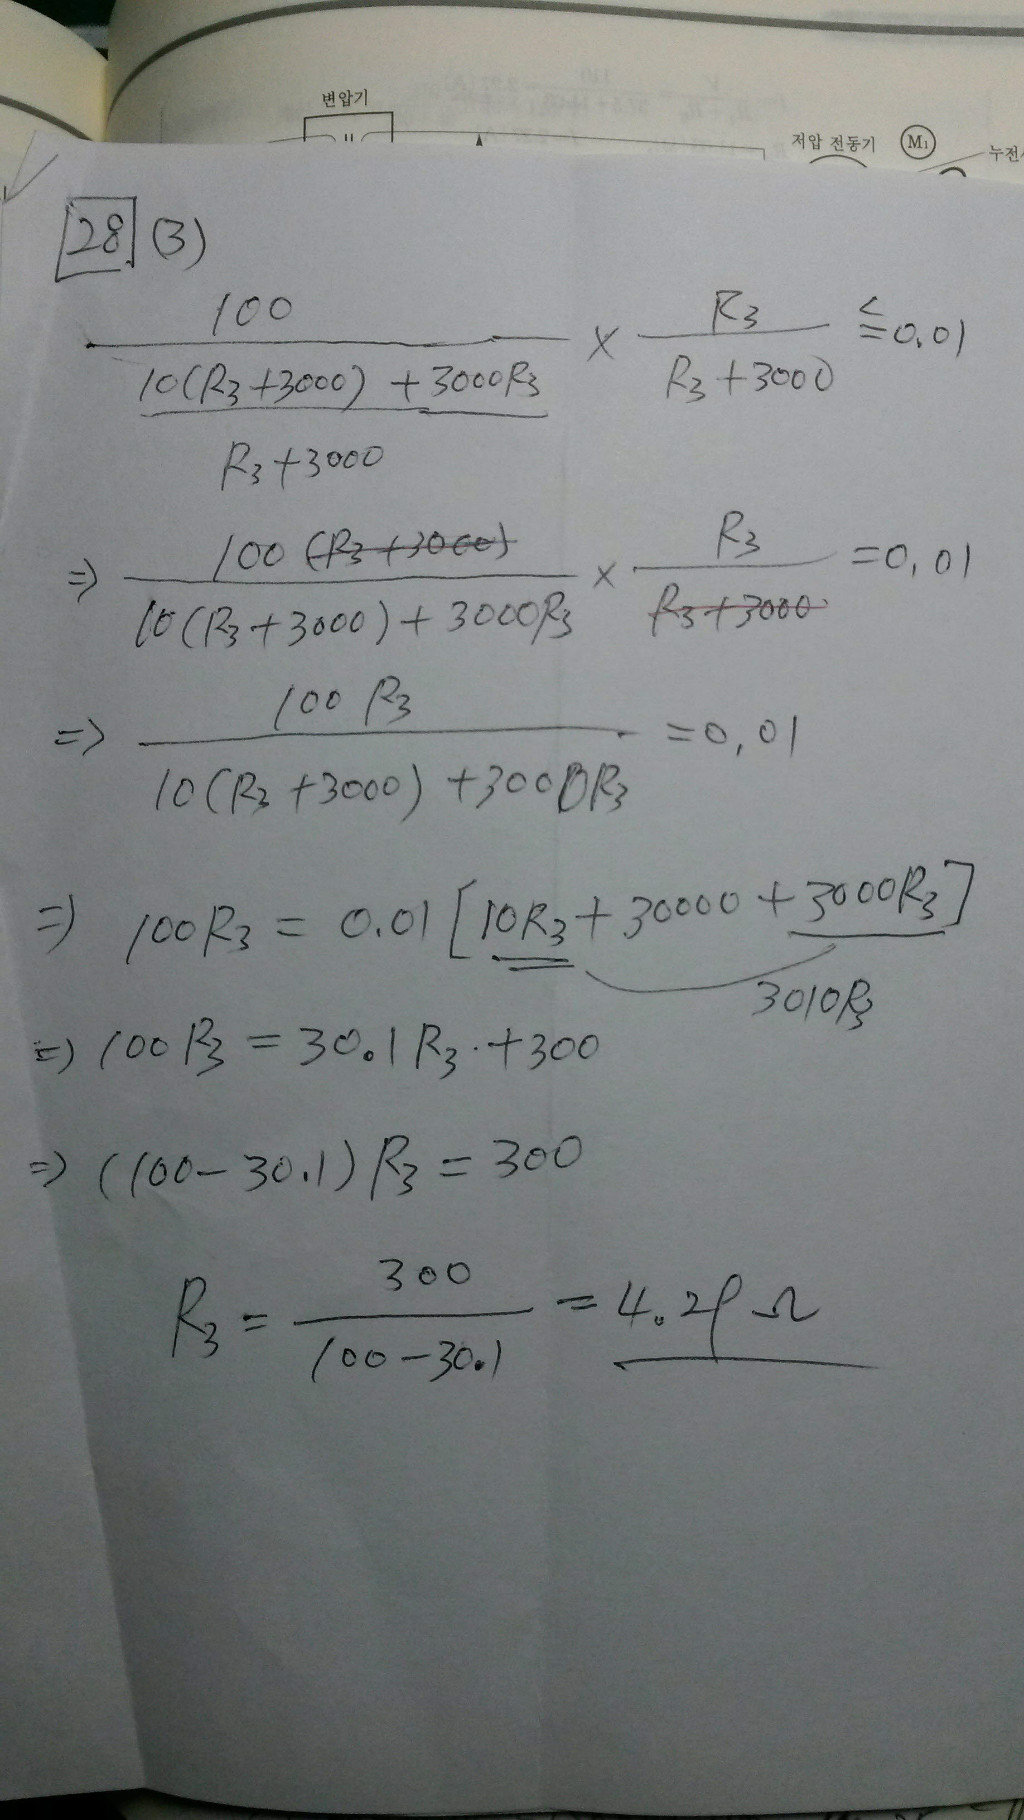 변압기
저압 전동기 M₁ 누전
28 (3)
100 / ((10(R₃+3000) + 3000R₃) / (R₃+3000)) × R₃ / (R₃+3000) ≤ 0.01
⇒ 100(R₃+3000) / (10(R₃+3000) + 3000R₃) × R₃ / (R₃+3000) = 0.01
⇒ 100 R₃ / (10(R₃+3000) + 3000R₃) = 0.01
⇒ 100R₃ = 0.01 [10R₃ + 30000 + 3000R₃]
3010R₃
⇒ 100R₃ = 30.1R₃ + 300
⇒ (100-30.1)R₃ = 300
R₃ = 300 / (100-30.1) = 4.29 Ω